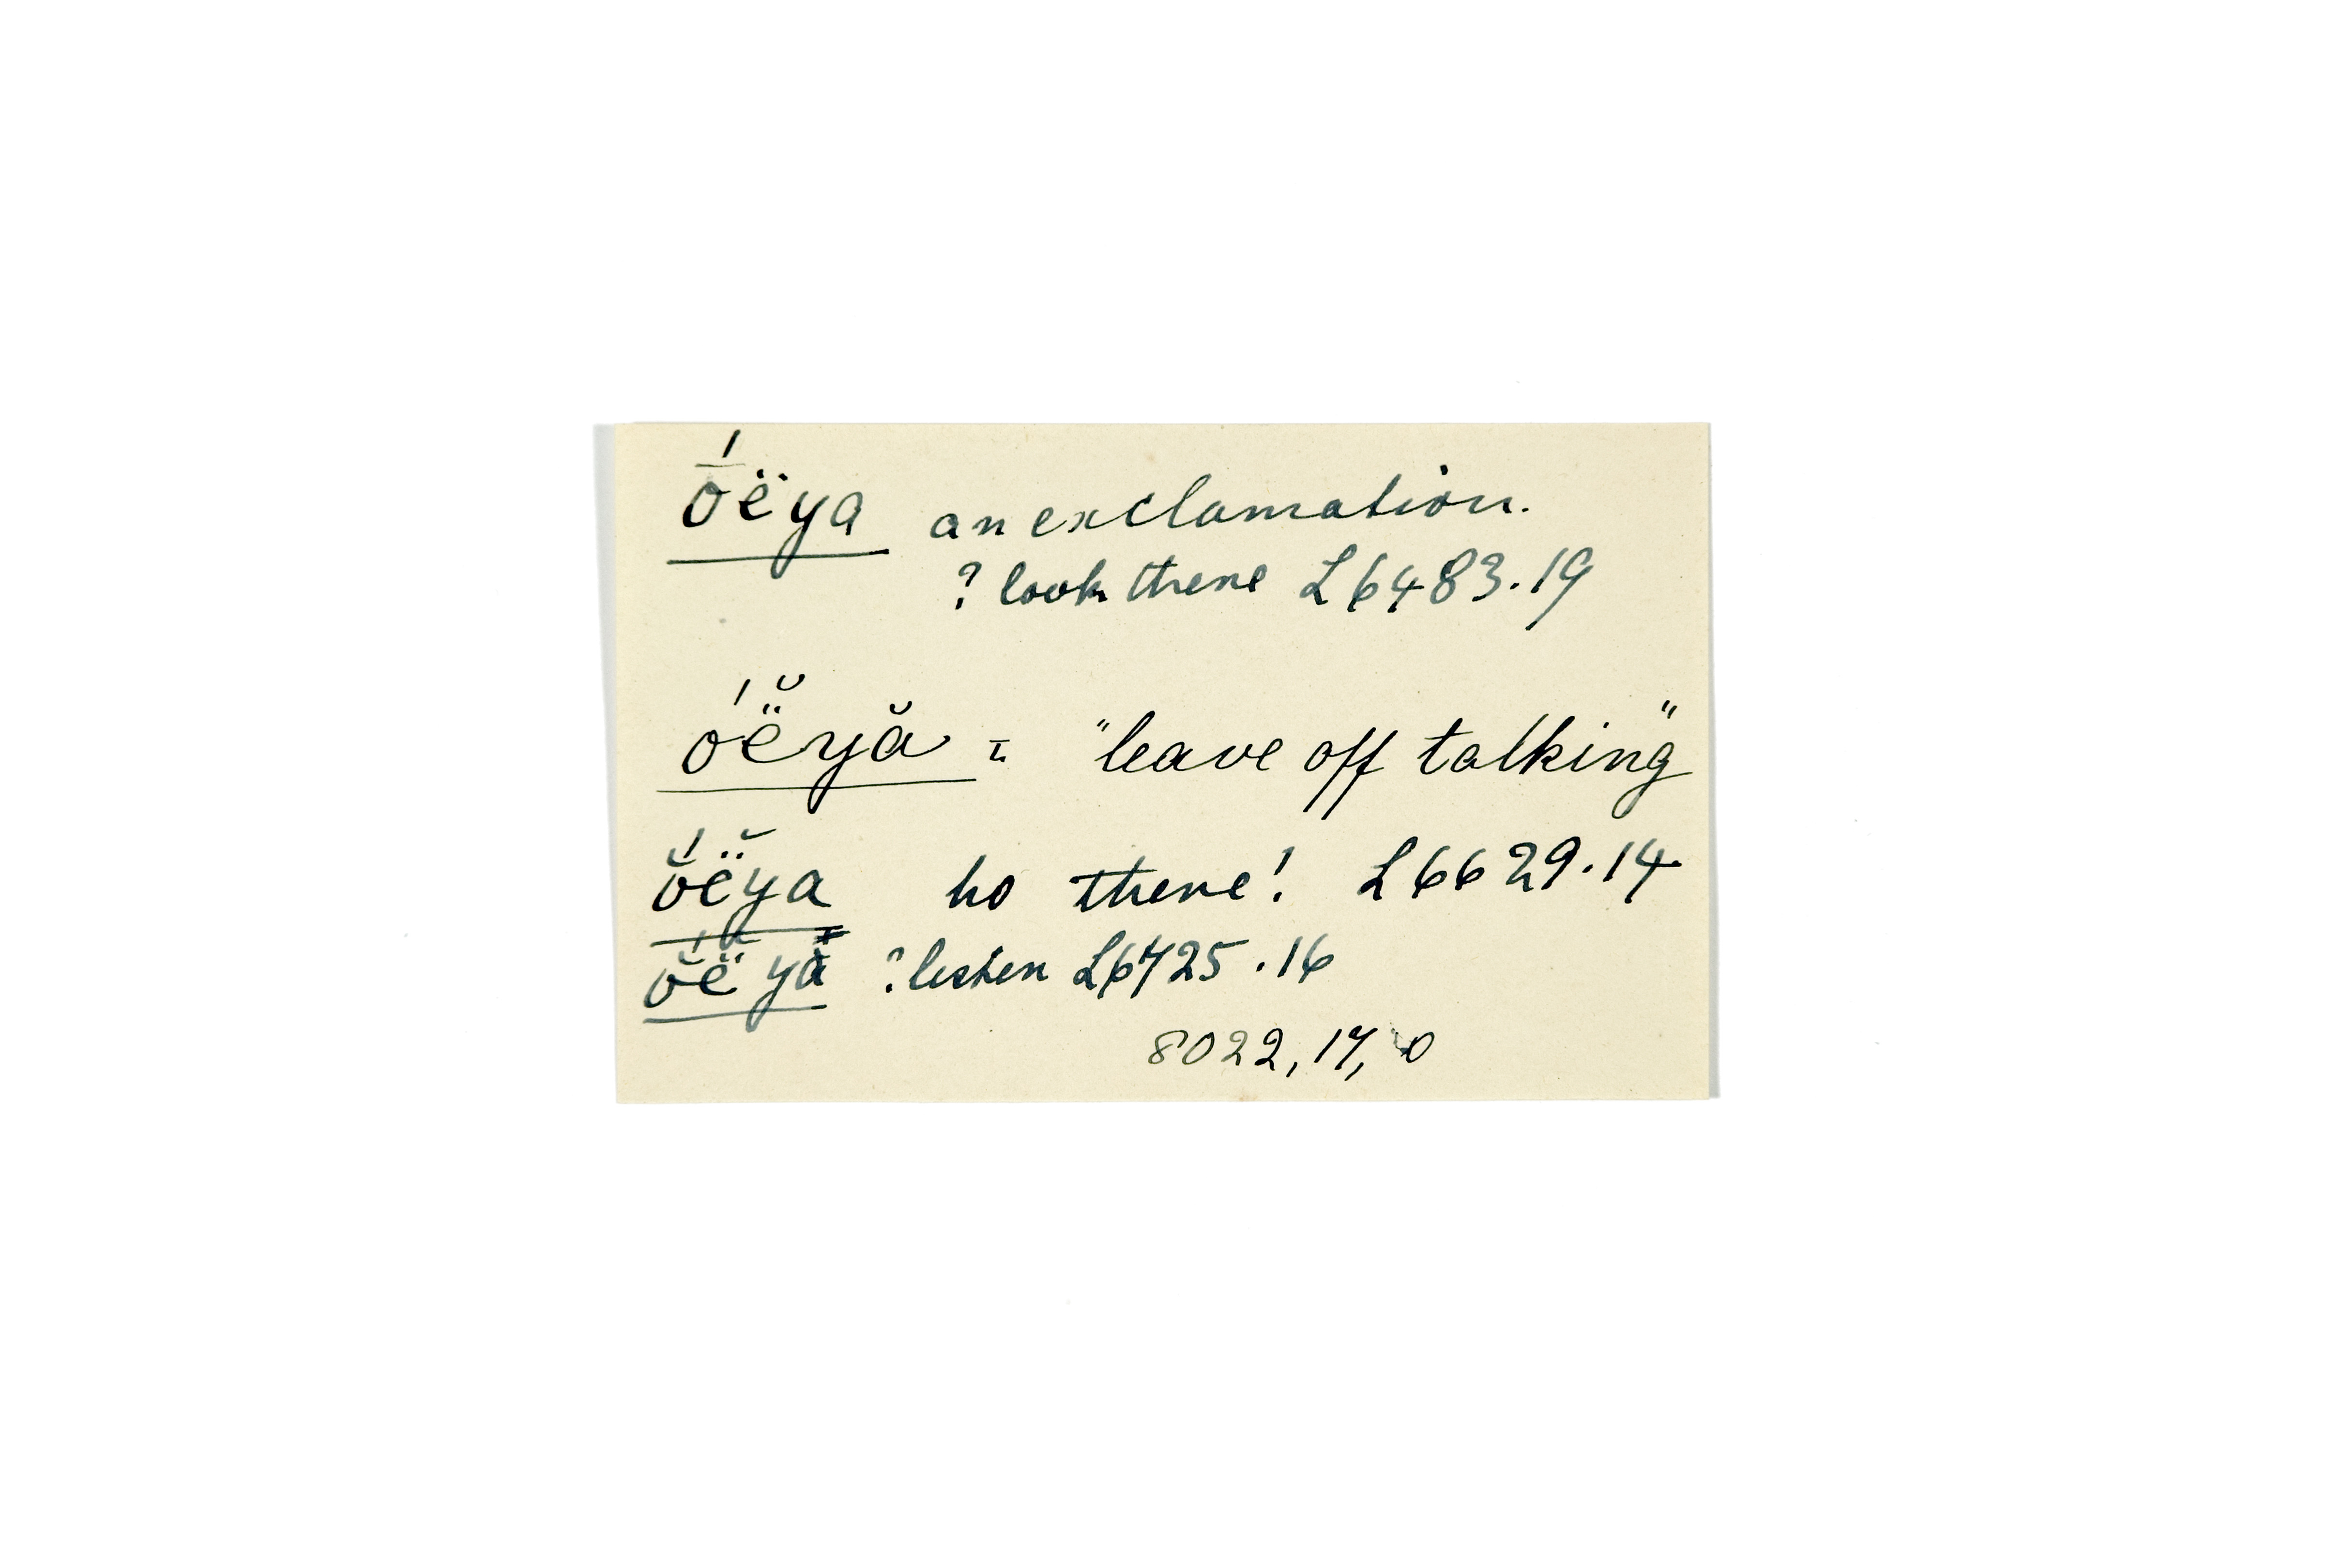 ṓëya an exclamation.
? look there L6483.19
óë̆yă = "leave off talking"
ŏ́ë̆ya ho there! L6629.14
ŏ́ë̆yă ? listen L6725.16
8022, 17, 0